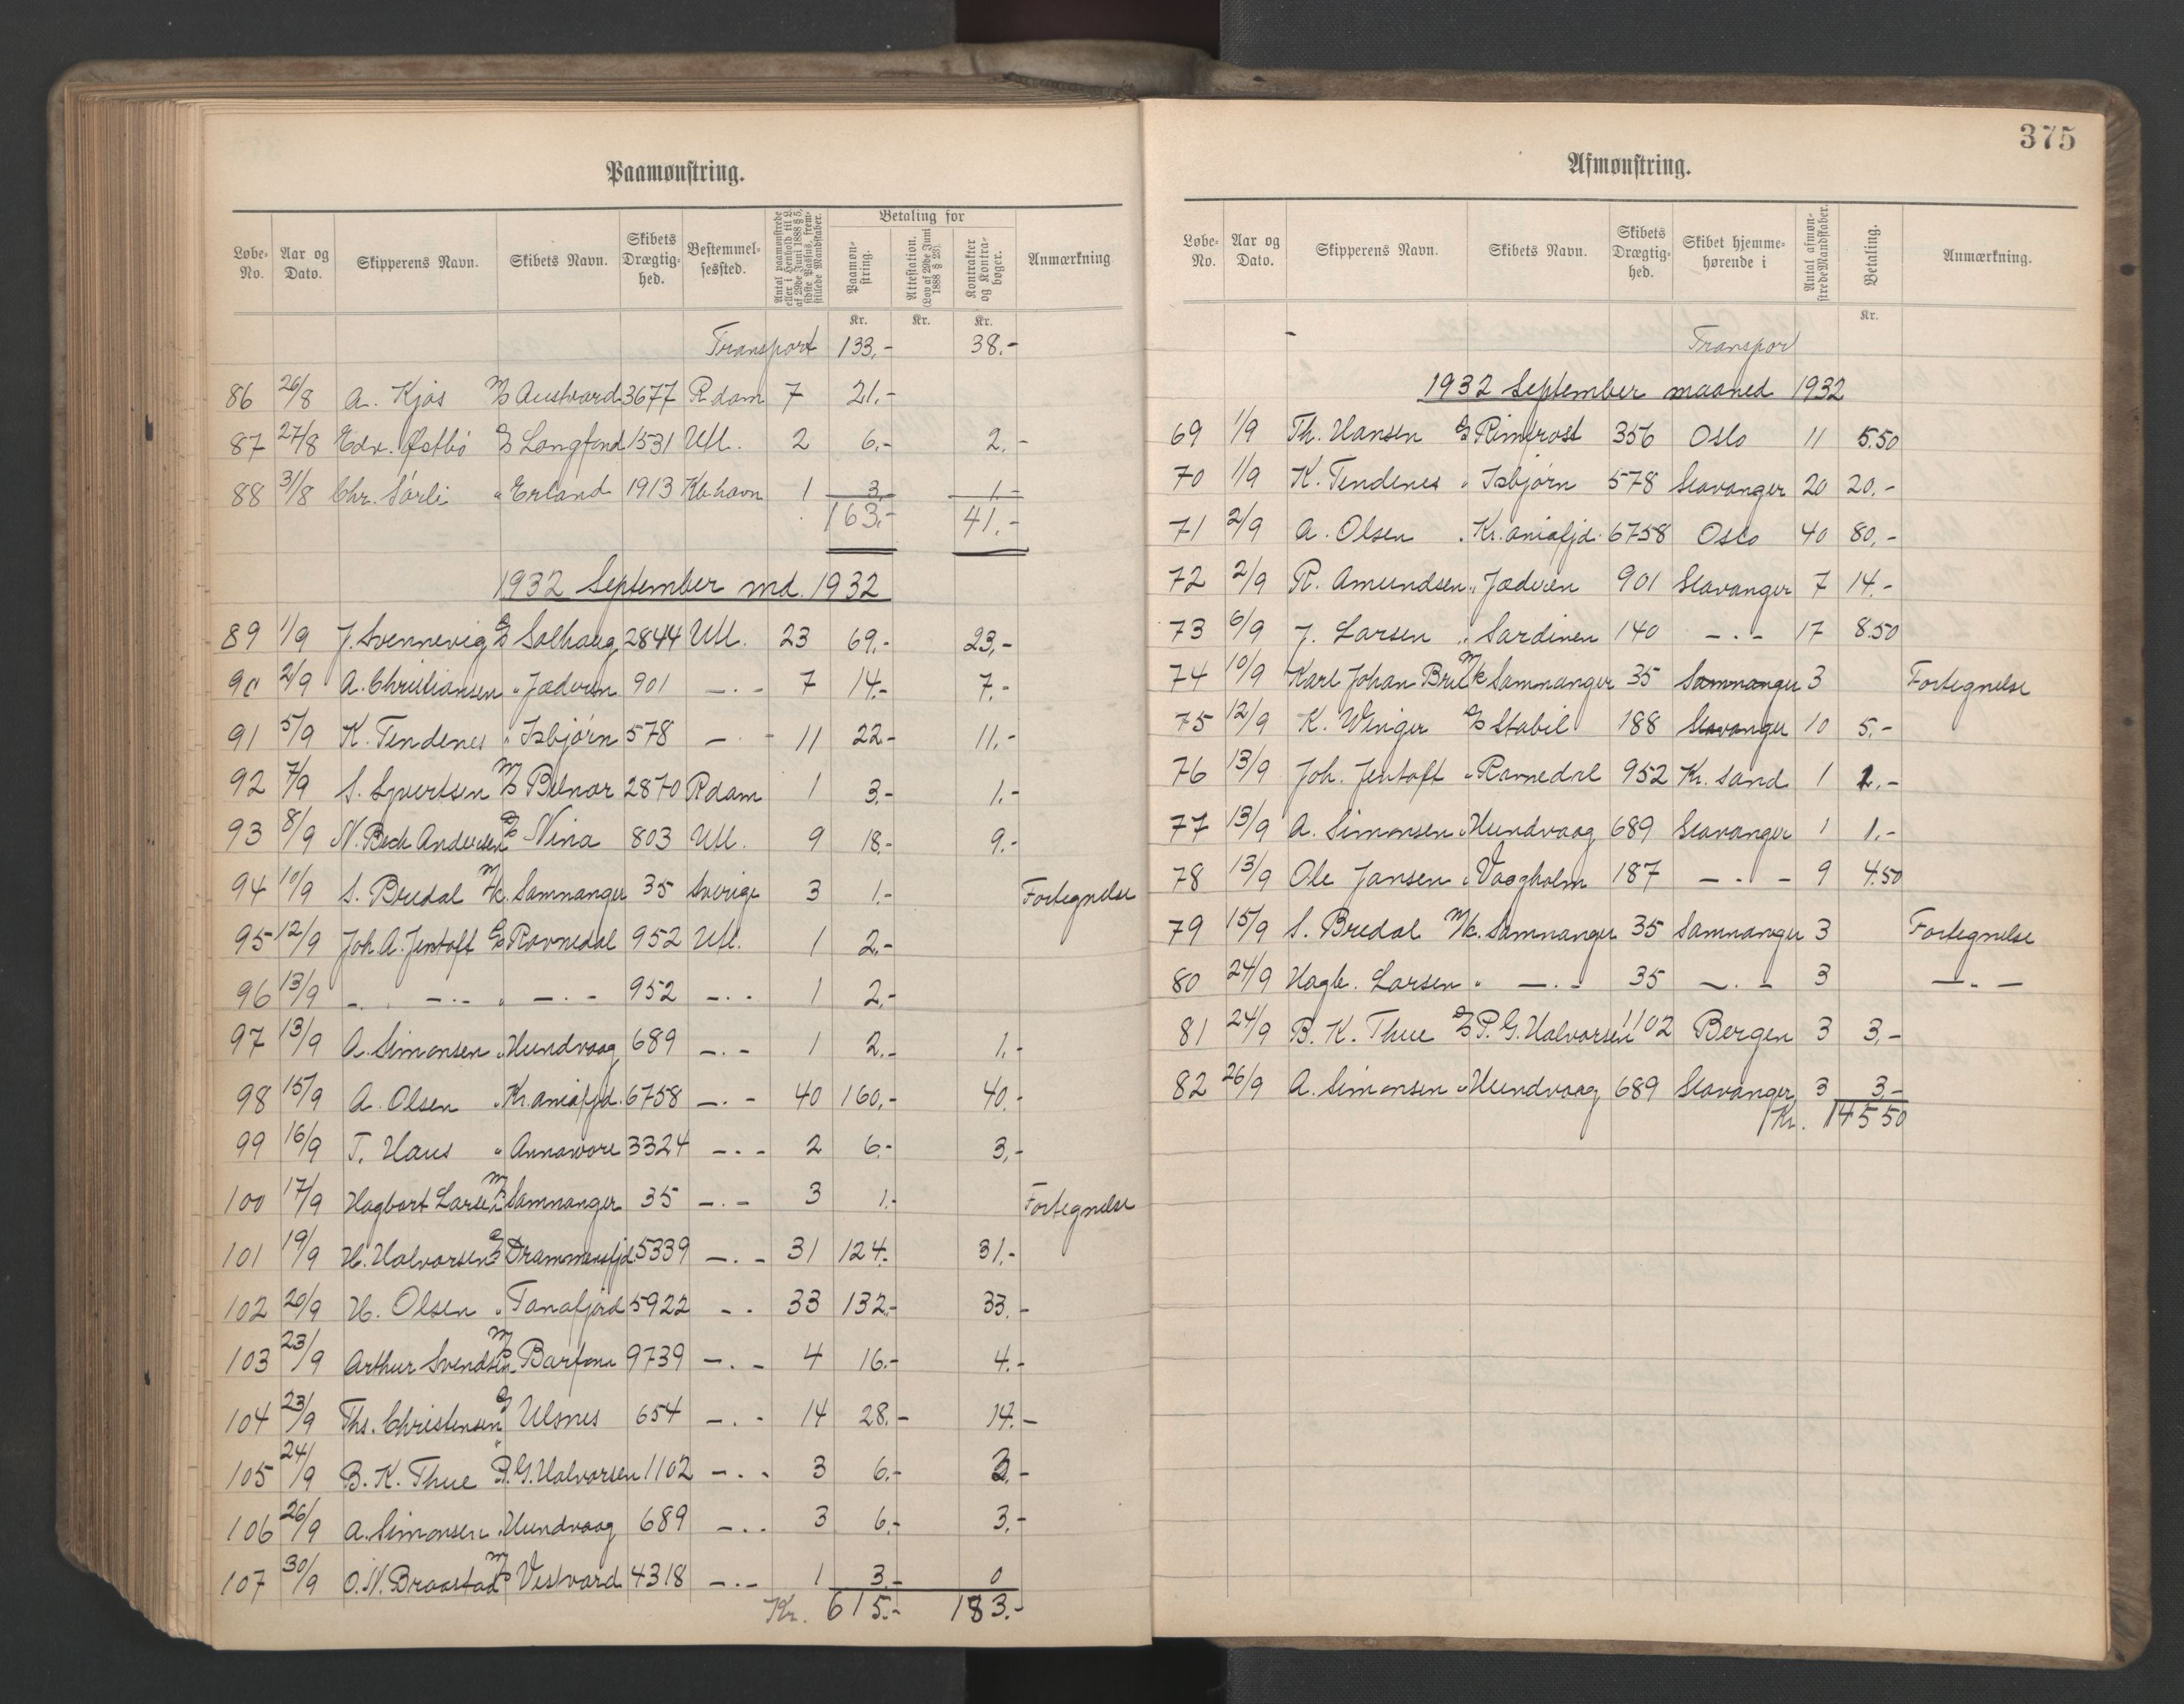 Paamønstring.
Løbe-No. Aar og Dato. Skipperens Navn. Skibets Navn. Skibets Drægtighed. Bestemmelsessted. Antal paamønstrede eller i Henhold til L. af 29de Juni 1888 § 5, sidste Passus, fremstillede Mandskaber. Betaling for Paamønstring. Attestation. (Lov af 29de Juni 1888 § 23). Kontrakter og Kontrabøger. Anmærkning
Kr. Kr. Kr.
Transport 133.- 38.-
86 26/8 A. Kjos M/S Austvard 3677 Rdam 7 21.-
87 27/8 Edv. Østbö S/S Langfond 1531 Utl. 2 6.- 2.-
88 31/8 Chr. Sörli " Erland 1913 Kb.havn 1 3.- 1.-
163.- 41.-
1932 September md. 1932
89 1/9 J. Svennevig S/S Solhaug 2844 Utl. 23 69.- 23.-
90 2/9 A. Christiansen " Jædvien 901 -"- 7 14.- 7.-
91 5/9 K. Tendenes " Isbjörn 578 -"- 11 22.- 11.-
92 7/9 S. Syvertsen M/S Belnor 2870 Rdam 1 3.- 1.-
93 8/9 N. Beck Andersen S/S Nina 803 Utl. 9 18.- 9.-
94 10/9 S. Bredal M/k. Samnanger 35 Sverige 3 1.- Fortegnelse
95 12/9 Joh. A. Jentoft S/S Ravnedal 952 Utl. 1 2.-
96 13/9 -"- -"- " -"- 952 -"- 1 2.-
97 13/9 A. Simonsen " Hundvaag 689 -"- 1 2.- 1.-
98 15/9 A. Olsen " Kr.aniafjd. 6758 -"- 40 160.- 40.-
99 16/9 T. Haus " Annavore 3324 -"- 2 6.- 3.-
100 17/9 Hagbart Larsen M/k Samnanger 35 -"- 3 1.- Fortegnelse
101 19/9 H. Halvorsen S/S Drammensfjd. 5339 -"- 31 124.- 31.-
102 20/9 H. Olsen " Tanafjord 5922 -"- 33 132.- 33.-
103 23/9 Arthur Svendsen M/S Barfonn 9739 -"- 4 16.- 4.-
104 23/9 Ths. Christensen S/S Ulsnes 654 -"- 14 28.- 14.-
105 24/9 B. K. Thue " P. G. Halvorsen 1102 -"- 3 6.- 3.-
106 26/9 A. Simonsen " Hundvaag 689 -"- 3 6.- 3.-
107 30/9 O. N. Braastad M/S Vestvard 4318 -"- 1 3.- 0
Kr. 615.- 183.-
375
Afmønstring.
Løbe-No. Aar og Dato. Skipperens Navn. Skibets Navn. Skibets Drægtighed. Skibet hjemmehørende i Antal afmønstrede Mandskaber. Betaling. Anmærkning.
Kr.
Transport
1932 September maaned 1932
69 1/9 Th. Hansen S/S Rimfrost 356 Oslo 11 5.50
70 1/9 K. Tendenes " Isbjørn 578 Stavanger 20 20.-
71 2/9 A. Olsen " Kr.aniafjd. 6758 Oslo 40 80.-
72 2/9 R. Amundsen " Jædvien 901 Stavanger 7 14.-
73 6/9 J. Larsen " Sardinen 140 -"- 17 8.50
74 10/9 Karl Johan M/k Samnanger 35 Samnanger 3 Fortegnelse
75 12/9 K. Winger S/S Stabil 188 Stavanger 10 5.-
76 13/9 Joh. Jentoft " Ravnedal 952 Kr. Sand 1 1.-
77 13/9 A. Simonsen " Hundvaag 689 Stavanger 1 1.-
78 13/9 Ole Jansen " Vaagholm 187 -"- 9 4.50
79 15/9 S. Bredal M/k. Samnanger 35 Samnanger 3 Fortegnelse
80 24/9 Hagb. Larsen " -"- 35 -"- 3 -"-
81 24/9 B. K. Thue S/S P. G. Halvorsen 1102 Bergen 3 3.-
82 26/9 A. Simonsen " Hundvaag 689 Stavanger 3 3.-
Kr. 145 50